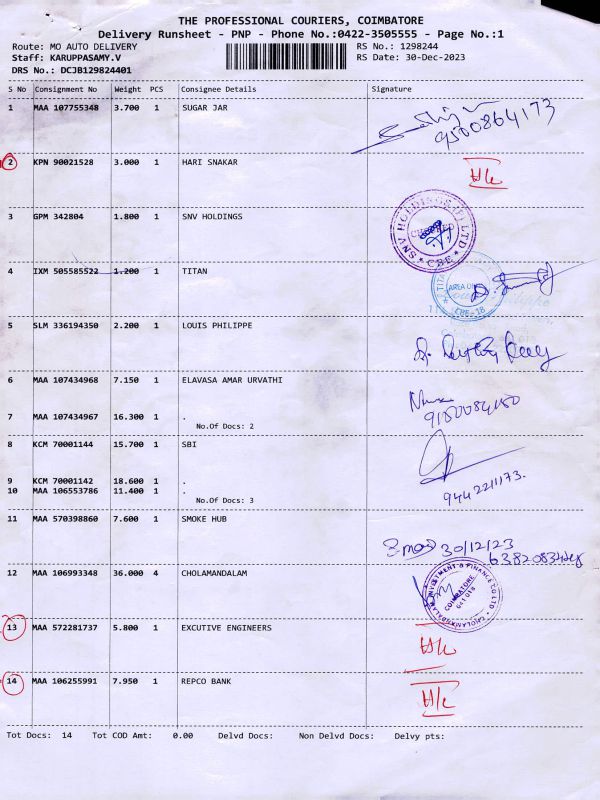 THE PROFESSIONAL COURIERS, COIMBATORE
Delivery Runsheet - PNP - Phone No.:0422-3505555 - Page No.:1
Route: MO AUTO DELIVERY RS No.: 1298244
Staff: KARUPPASAMY.V RS Date: 30-Dec-2023
DRS No.: DCJB129824401
S No Consignment No Weight PCS Consignee Details Signature
1 MAA 107755348 3.700 1 SUGAR JAR
9500864173
2 KPN 90021528 3.000 1 HARI SNAKAR
3 GPM 342804 1.800 1 SNV HOLDINGS
SNV HOLDINGS (P) LTD
CBE
4 IXM 505585522 1.200 1 TITAN
AREA OF
CBE-18
5 SLM 336194350 2.200 1 LOUIS PHILIPPE
6 MAA 107434968 7.150 1 ELAVASA AMAR URVATHI
7 MAA 107434967 16.300 1 .
No.Of Docs: 2
8 KCM 70001144 15.700 1 SBI
9 KCM 70001142 18.600 1 .
10 MAA 106553786 11.400 1 .
No.Of Docs: 3
9442211173.
11 MAA 570398860 7.600 1 SMOKE HUB
30/12/23
12 MAA 106993348 36.000 4 CHOLAMANDALAM
CHOLAMANDALAM INVESTMENT & FINANCE CO LTD
COIMBATORE
13 MAA 572281737 5.800 1 EXCUTIVE ENGINEERS
14 MAA 106255991 7.950 1 REPCO BANK
Tot Docs: 14 Tot COD Amt: 0.00 Delvd Docs: Non Delvd Docs: Delvy pts: